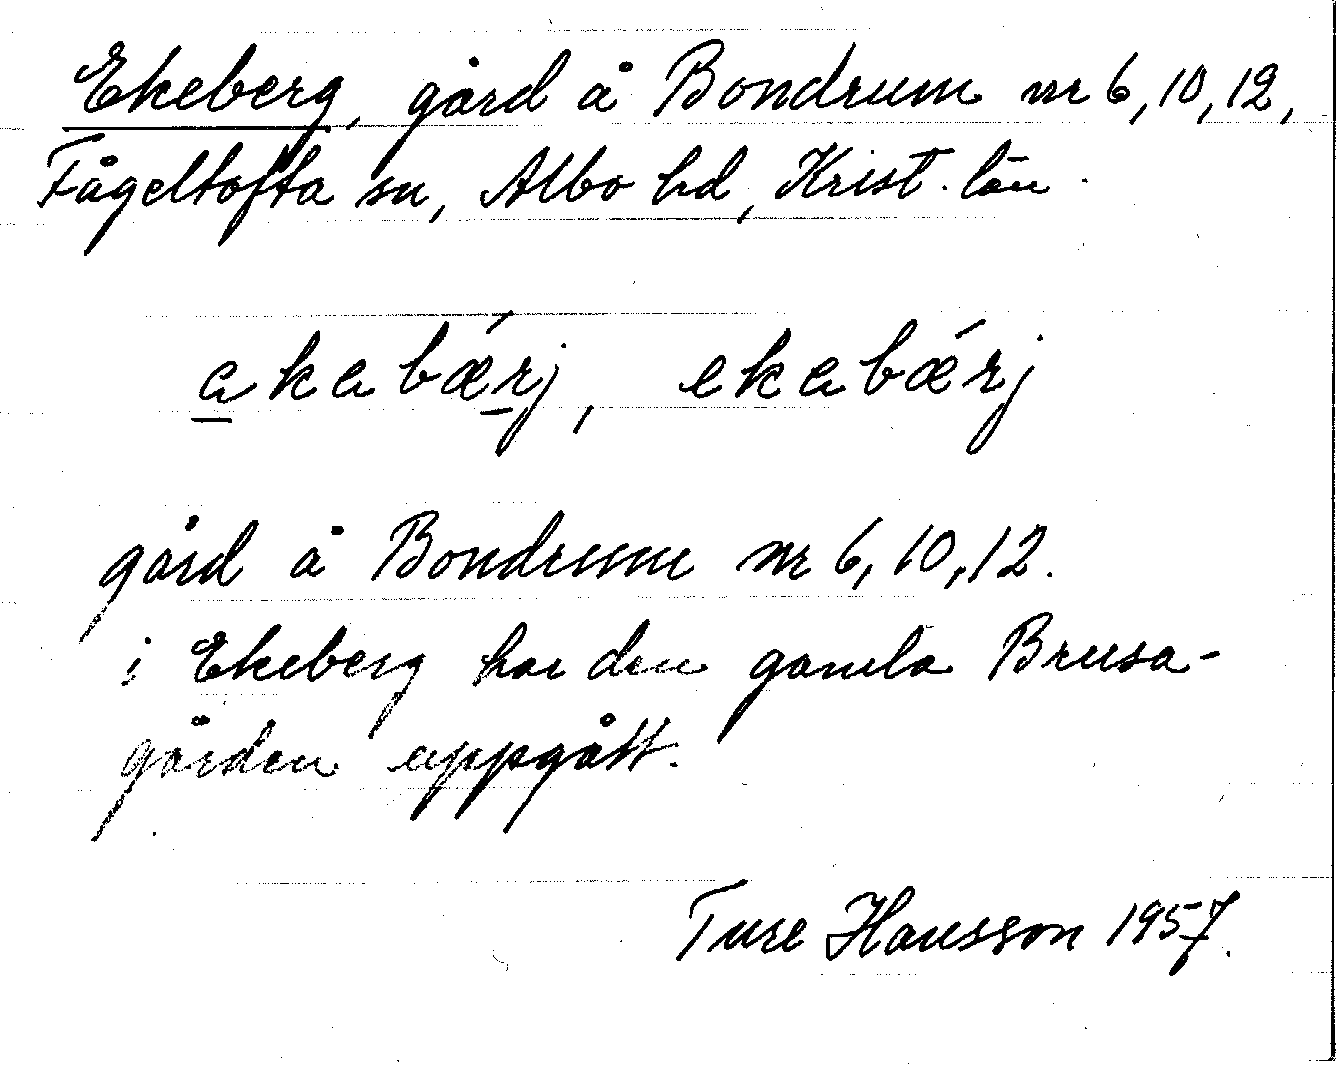 Ekeberg, gård å Bondrum nr 6, 10, 12,
Fågeltofta sn, Albo hd, Krist. län.
akabærj, ekabærj
gård å Bondrum nr 6, 10, 12.
i Ekeberg har den gamla Brusa-
gården uppgått.
Ture Hansson 1957.